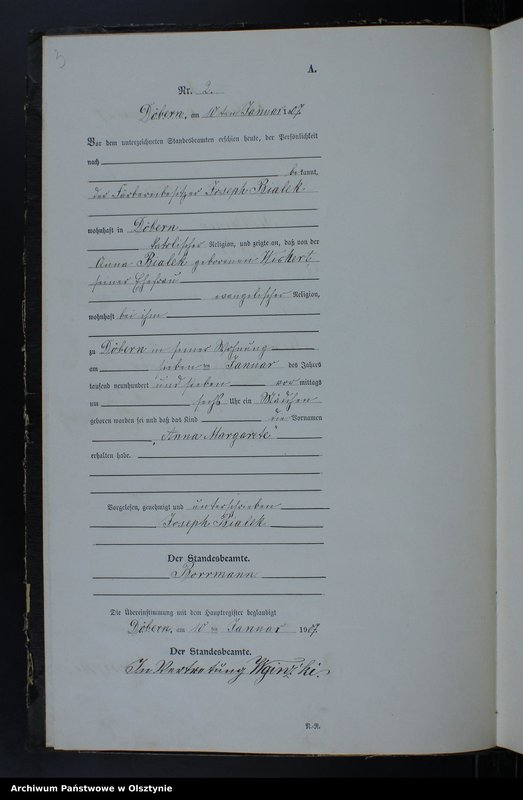 3
A.
Nr. 2.
Döbern, am 10ten Januar 1907.
Vor dem unterzeichneten Standesbeamten erschien heute, der Persönlichkeit
nach
bekannt,
der Färbereibesitzer Joseph Bialek
wohnhaft in Döbern
katolischer Religion, und zeigte an, daß von der
Anna Bialek geborenen Wichert,
seiner Ehefrau
evangelischer Religion,
wohnhaft bei ihm
zu Döbern in seiner Wohnung
am sieben ten Januar des Jahres
tausend neunhundert und sieben vor mittags
um sechs Uhr ein Mädchen
geboren worden sei und daß das Kind die Vornamen
"Anna Margarete"
erhalten habe.
Vorgelesen, genehmigt und unterschrieben
Joseph Bialek
Der Standesbeamte.
Borrmann
Die Übereinstimmung mit dem Hauptregister beglaubigt
Döbern, am 10 ten Januar 1907.
Der Standesbeamte.
In Vertretung
Archiwum Państwowe w Olsztynie